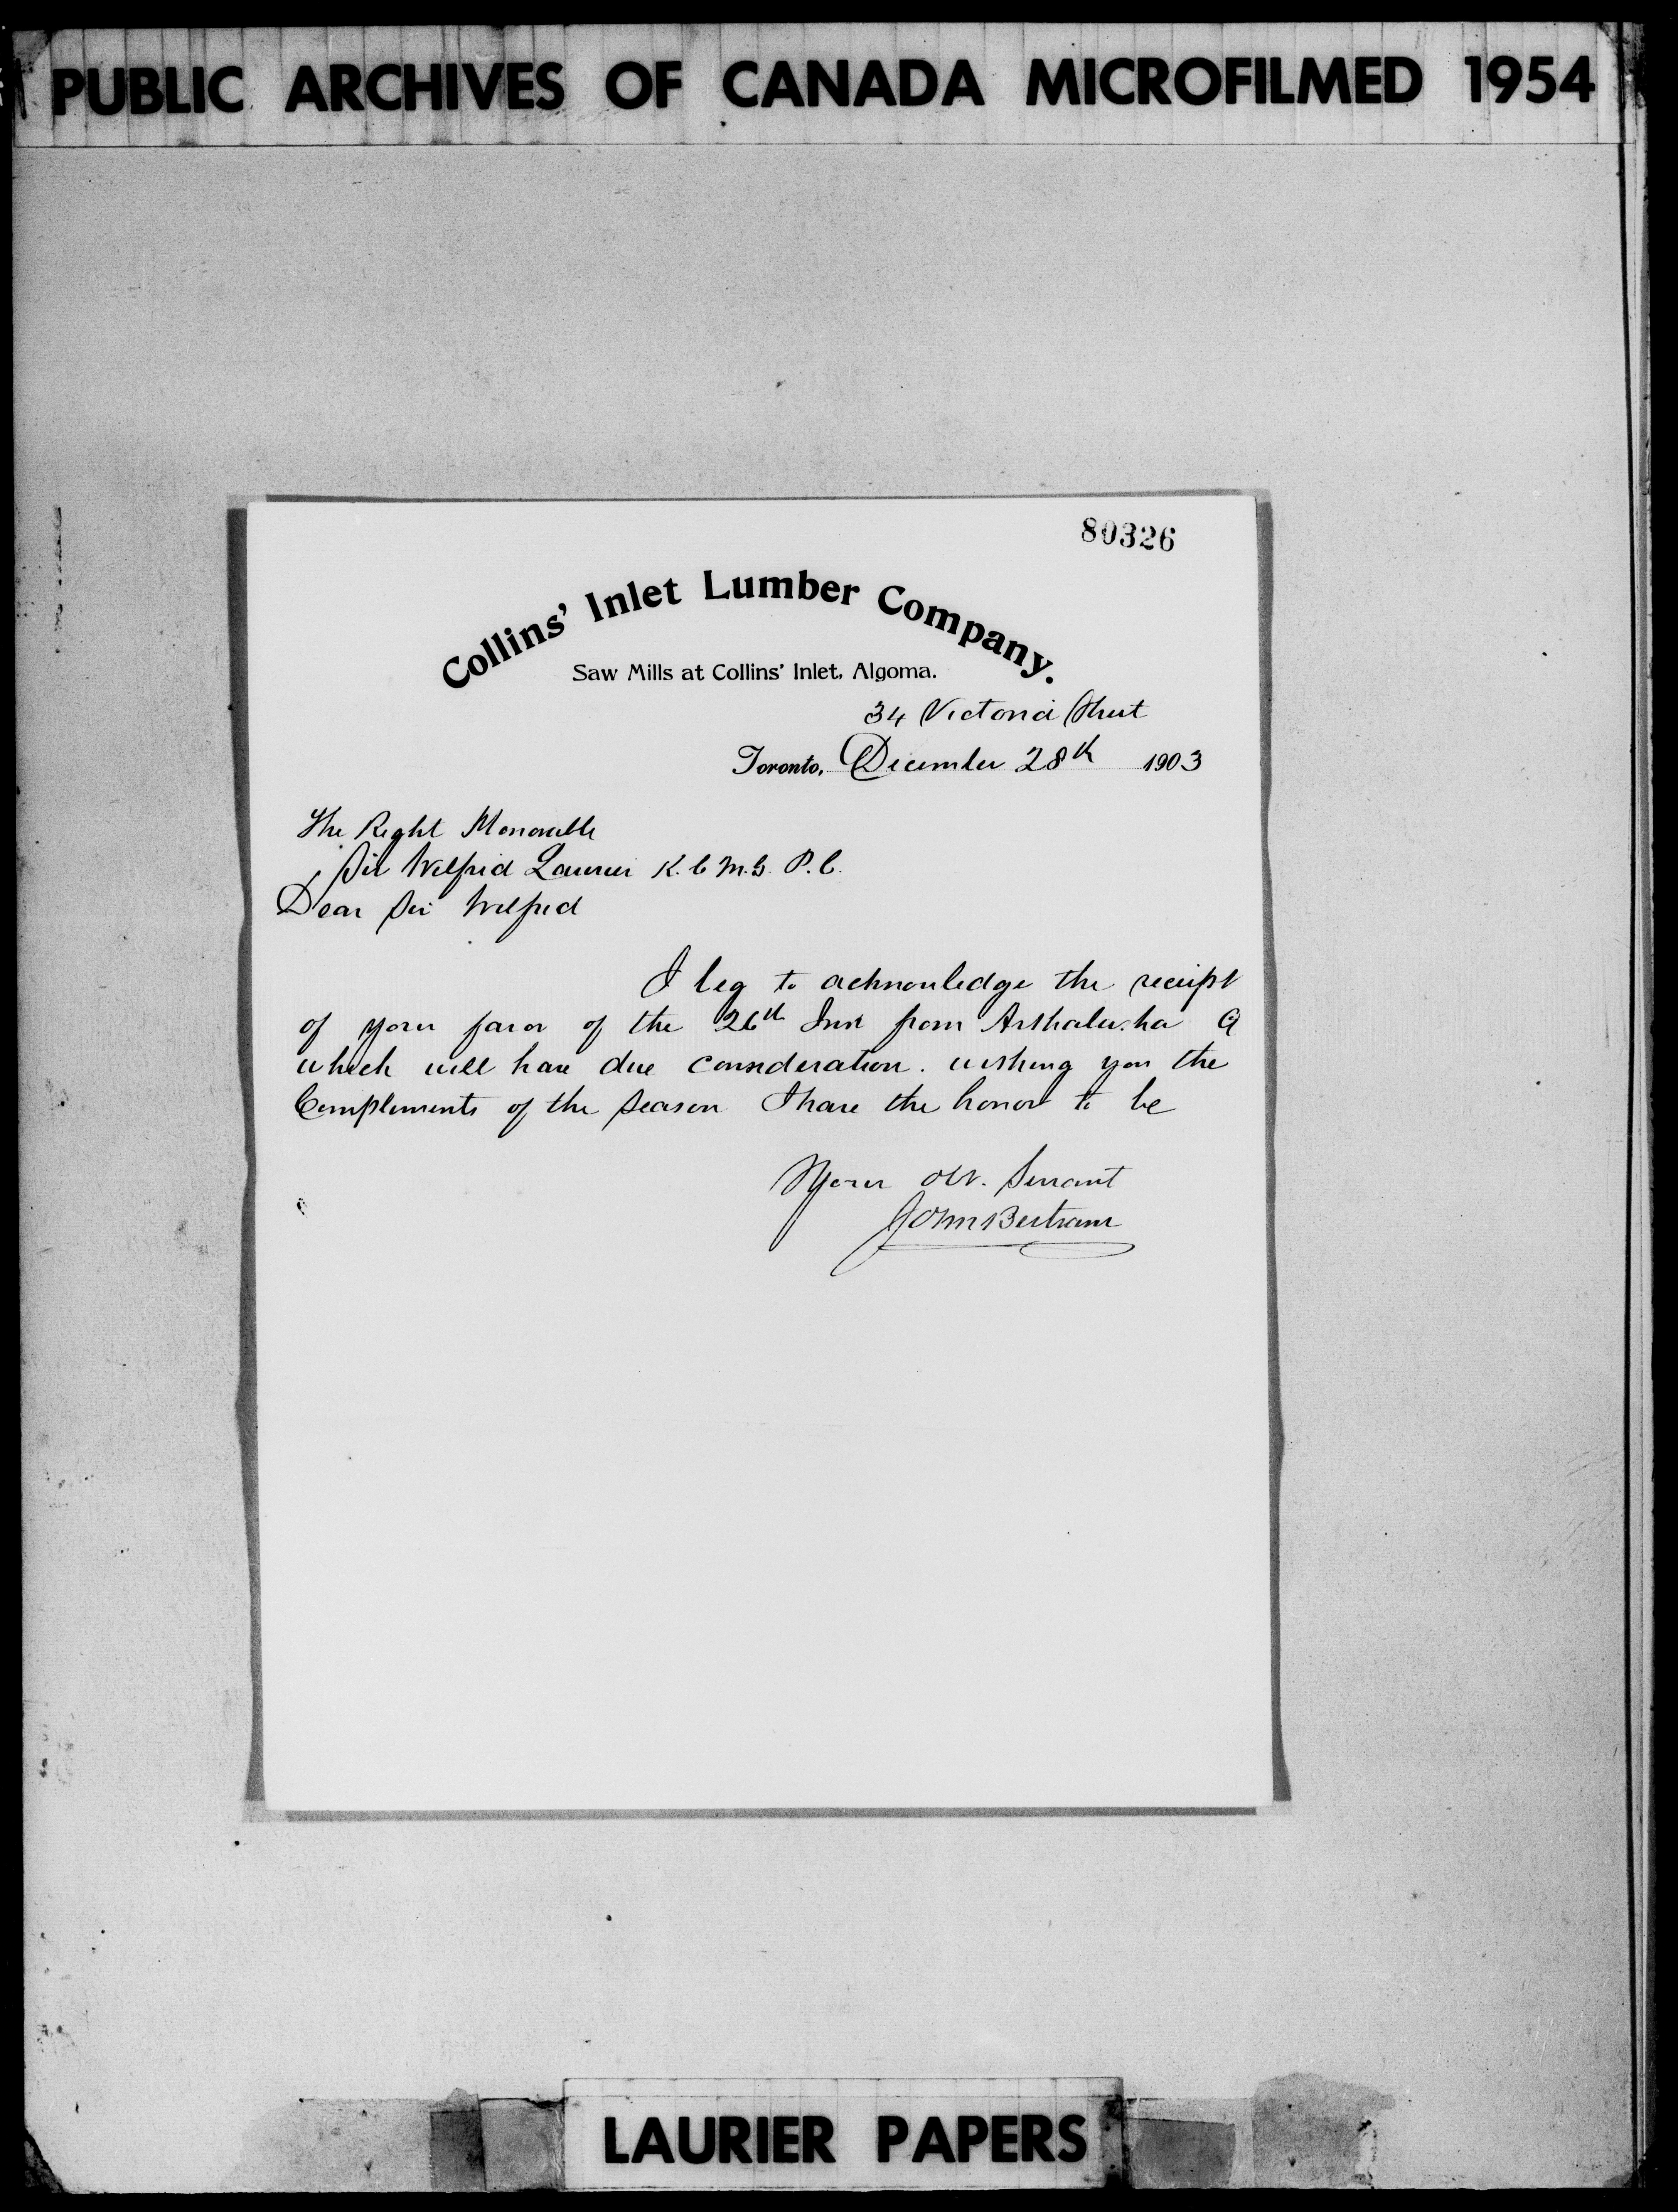 PUBLIC ARCHIVES OF CANADA MICROFILMED 1954
80326
Collins' Inlet Lumber Company.
Saw Mills at Collins' Inlet, Algoma.
34 Victoria Street
Toronto, December 28th 1903
The Right Honorable
Sir Wilfrid Laurier K.C.M.G. P.C.
Dear Sir Wilfrid
I beg to acknowledge the receipt
of your favor of the 26th Inst from
which will have due consideration. wishing you the
Compliments of the Season I have the honor to be
Your obt. Servant
John Bertram
LAURIER PAPERS